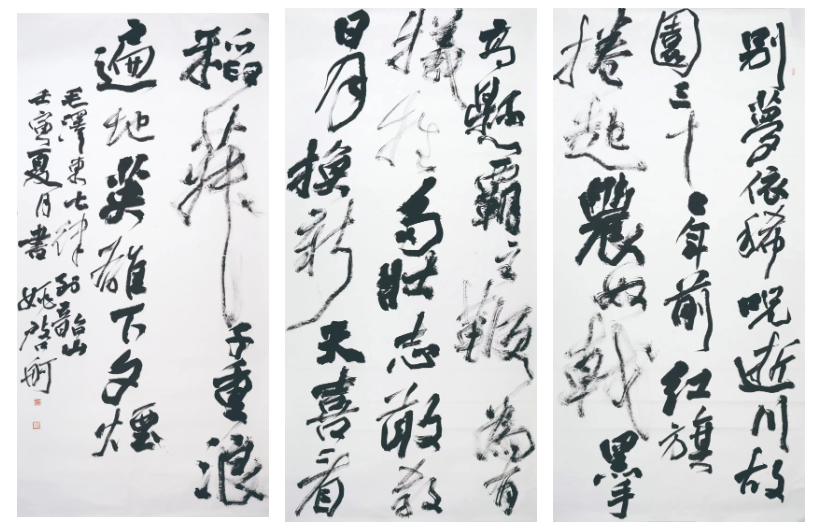 别夢依稀呪逝川故
園三十二年前红旗
捲起農奴戟黑手
高懸霸主鞭為有
犧牲多壯志敢教
日月換新天喜看
稻菽千重浪
遍地英雄下夕煙
毛澤東七律到韶山
壬寅夏月書 姚